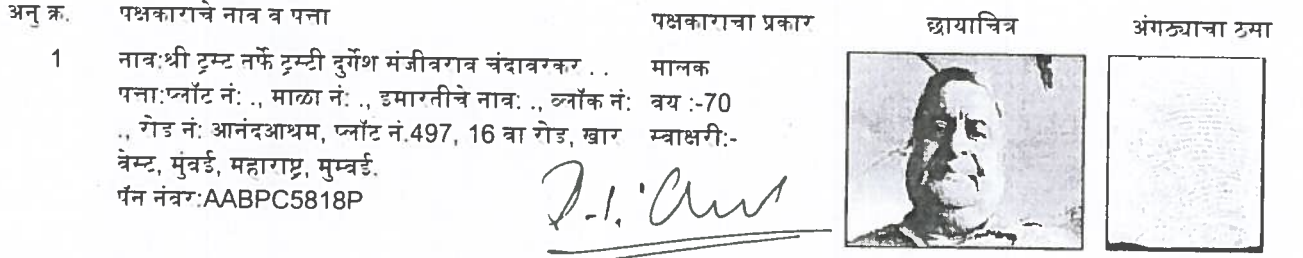 अनु क्र. पक्षकाराचे नाव व पत्ता पक्षकाराचा प्रकार छायाचित्र अंगठ्याचा ठसा
1 नाव:श्री ट्रस्ट तर्फे ट्रस्टी दुर्गेश मंजीवराव चंदावरकर . . मालक
पत्ता:प्लॉट नं: ., माळा नं: ., इमारतीचे नाव: ., ब्लॉक नं: वय :-70
., रोड नं: आनंदआश्रम, प्लॉट नं.497, 16 वा रोड, खार स्वाक्षरी:-
वेस्ट, मुंबई, महाराष्ट्र, मुम्बई.
पॅन नंबर:AABPC5818P